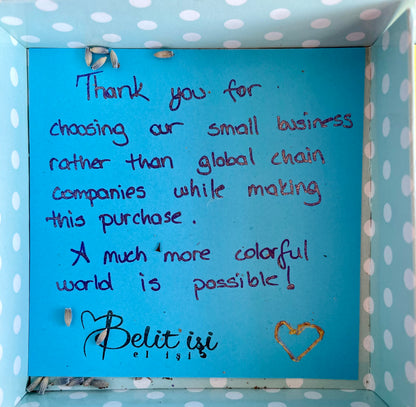 Thank you for
choosing our small business
rather than global chain
companies while making
this purchase.
A much more colorful
world is possible!
Belit işi
el işi